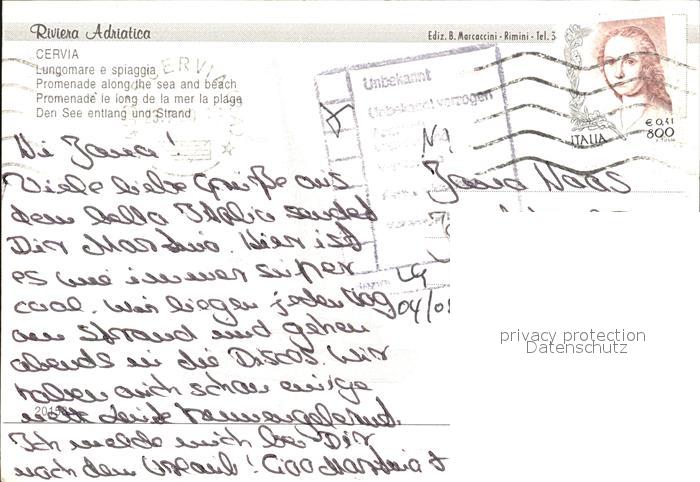 Riviera Adriatica
Ediz. B. Marcaccini - Rimini - Tel. 3
CERVIA
Lungomare e spiaggia
Promenade along the sea and beach
Promenade le long de la mer la plage
Den See entlang und Strand
CERVIA
Unbekannt
Unbekannt verzogen
ITALIA
€ 0,41
800
Hi Jana!
Viele liebe Grüße aus
dem bella Italia sendet
Dir Martina. Hier ist
es wie immer super
cool. Wir liegen jeden Tag
am Strand und gehen
abends in die Discos. Wir
haben auch schon einige
nette Leute kennengelernt.
Ich melde mich bei Dir
nach dem Urlaub! Ciao Martina
Jana
04/0
201
privacy protection
Datenschutz